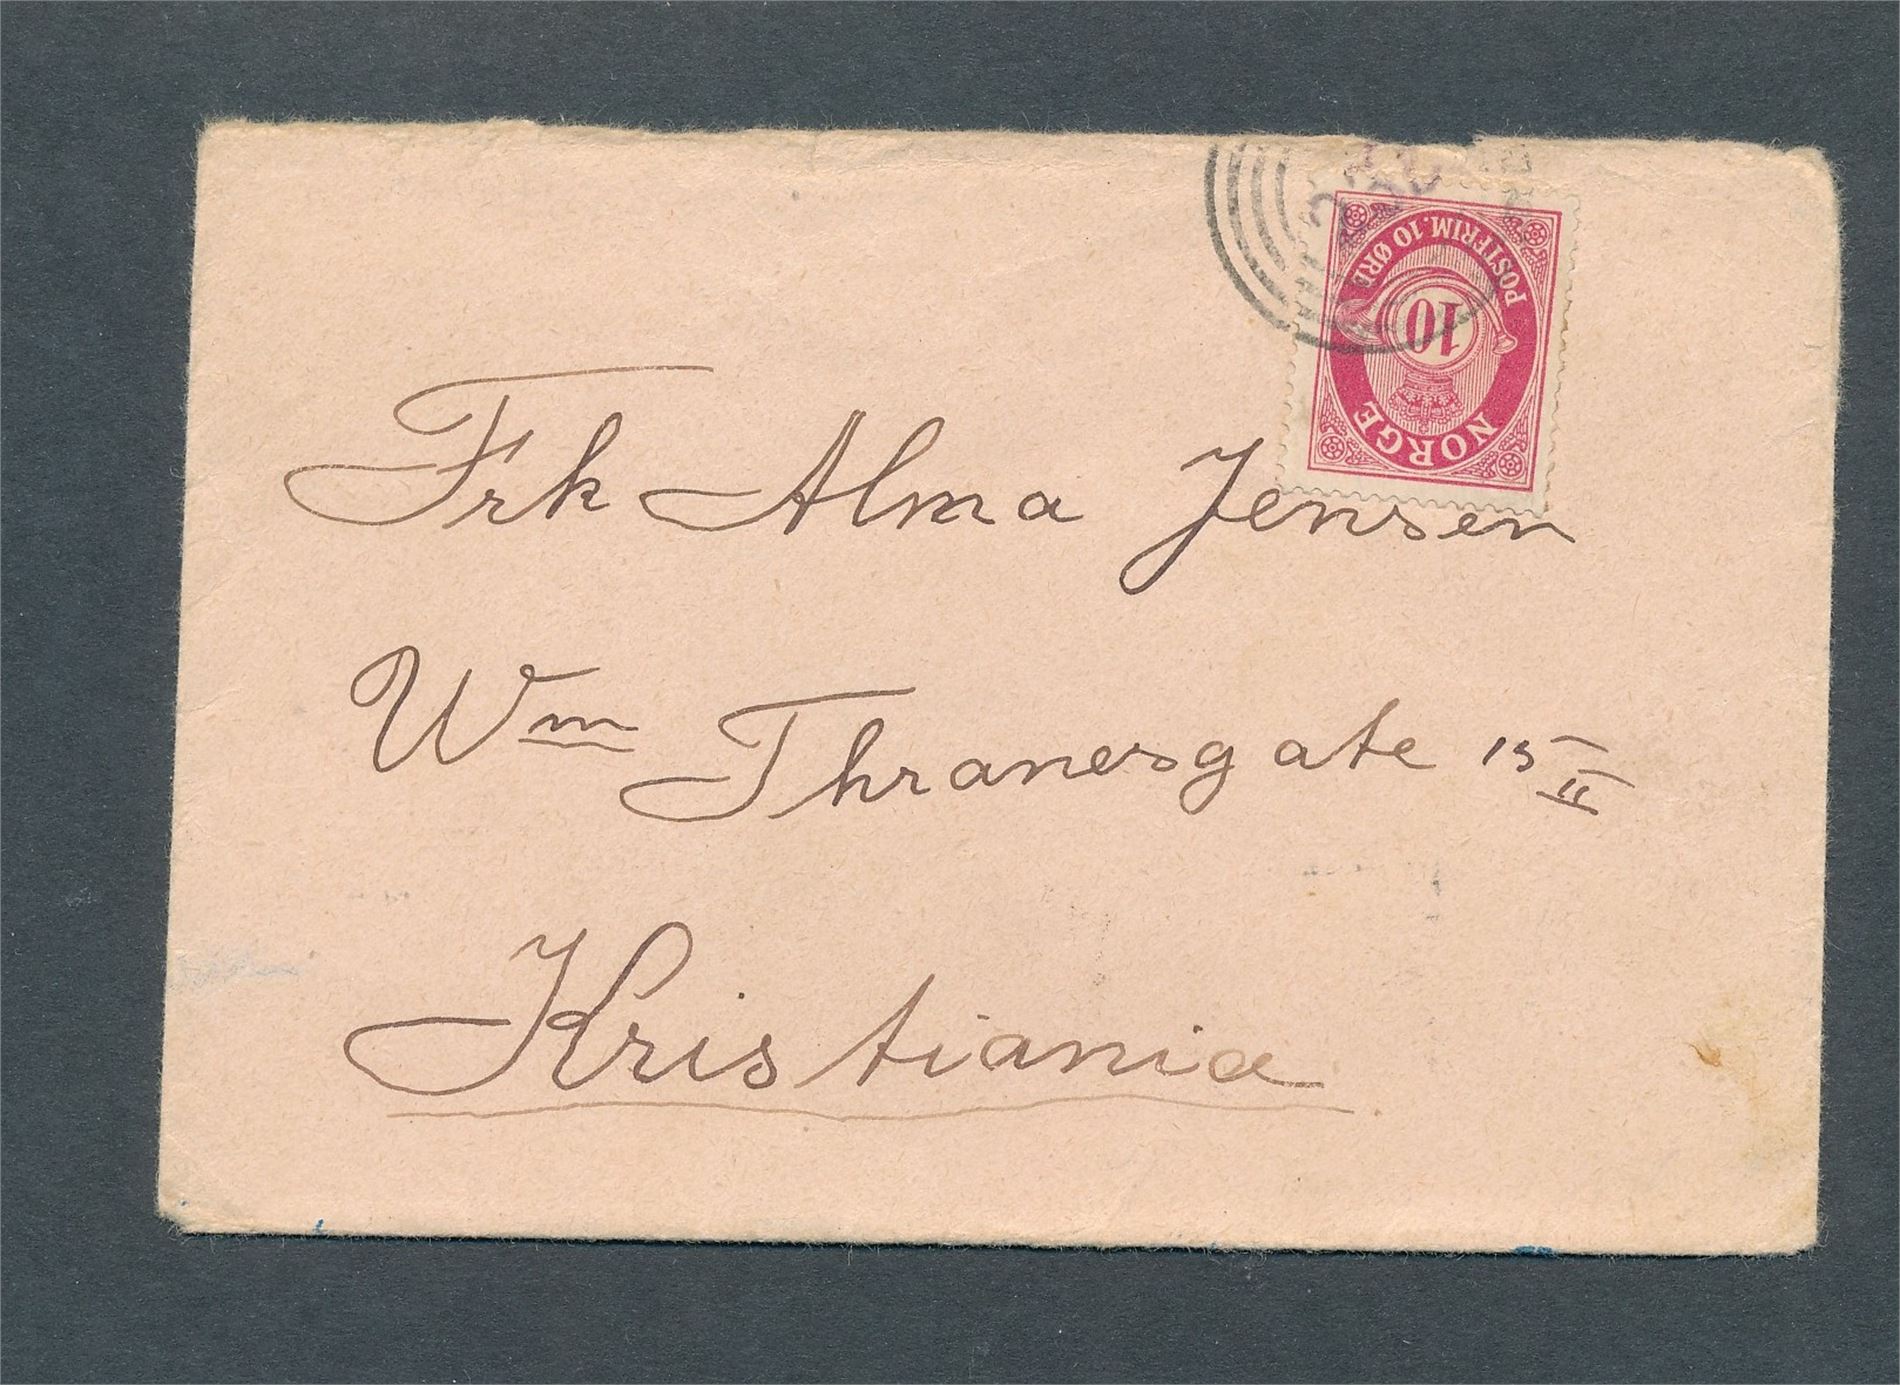 POSTFRIM. 10 ØRE
10
NORGE
Frk Alma Jensen
Wm Thranesgate 15 II
Kristiania